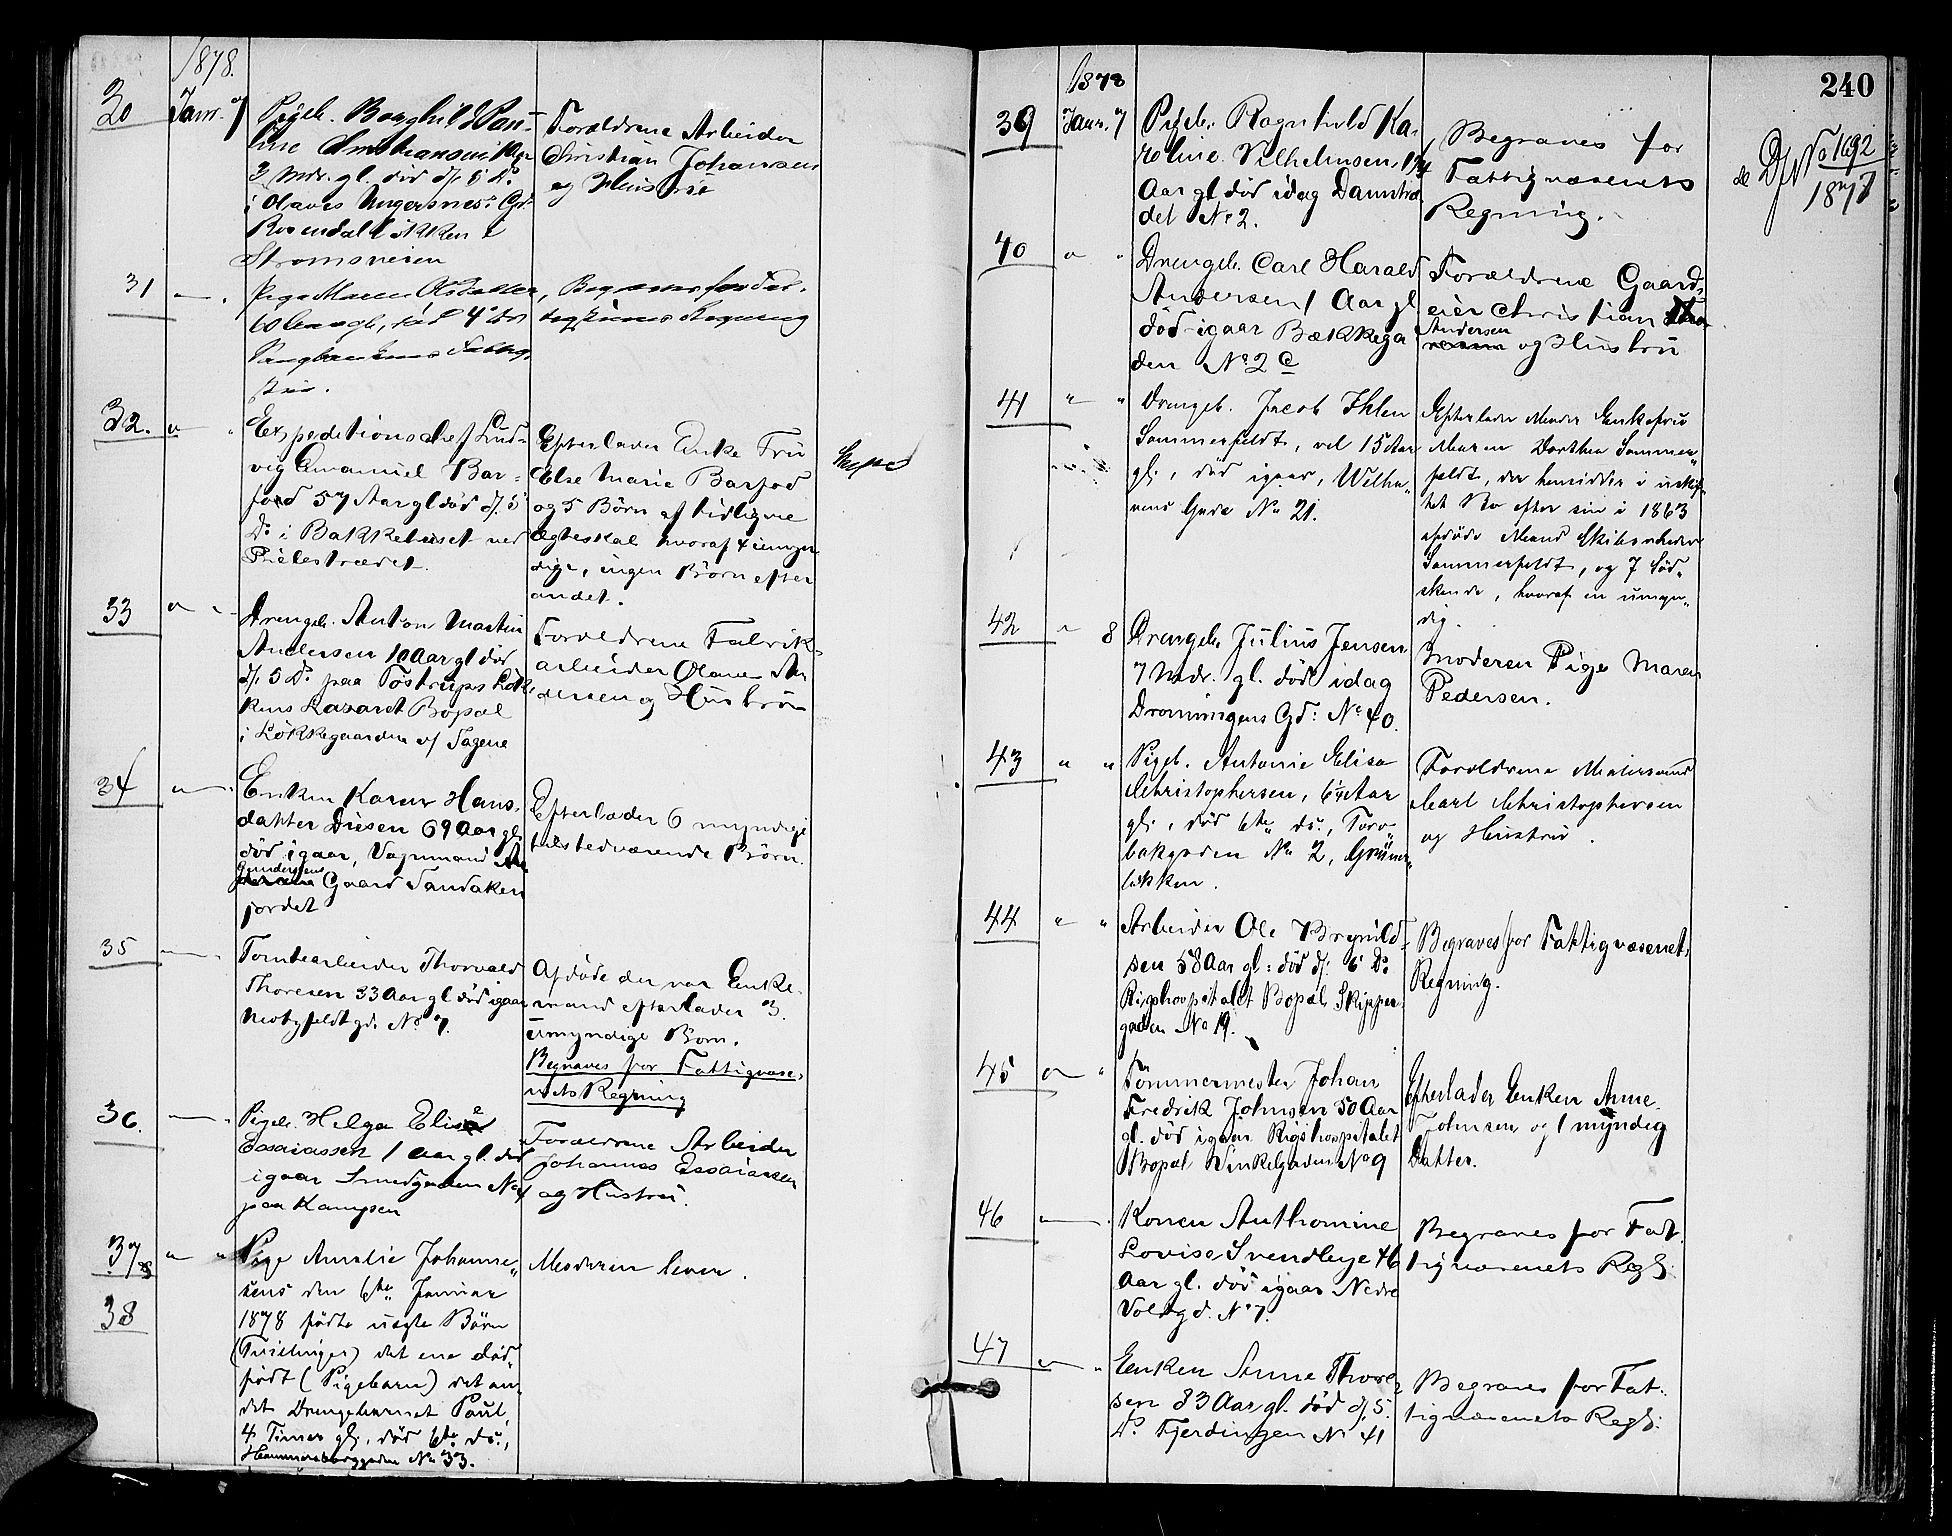 1878.
30 Janr. 7 Pigeb. Borghild Pau-
line Christiansen
3 Mdr. gl. død d/. 5 Ds
i Olaves Ungersnes's Gd.
Rosendalløkken i
Strømsveien
Forældrene Arbeider
Christian Johansen
og Hustru
31 Pige Maren
død 4 Ds
Begraves for Fat-
tigvæsenets Regning
32. Expeditionschef Lud-
vig Emanuel Bar-
fod 57 Aar gl død d/. 5
Ds i Bakkehuset ved
Pilestrædet.
Efterlader Enke Fru
Else Marie Barfod
og 5 Børn af tidligere
Ægteskab hvoraf 4 umyn-
dige, ingen Børn efter
andet.
33 Drengeb. Anton Martin
Andersen 10 Aar gl død
d/. 5 Ds paa Tostrups Løk-
kens Lazaret Bopæl
i Løkkegaarden v/ Sagene
Forældrene Fabrik-
arbeider Olaus An-
dersen og Hustru
34 Enken Karen Hans-
datter Diesen 69 Aar gl
død igaar, Vognmand
Gundersens
Gaard Sandaker-
jordet
Efterlader 6 myndige
tilstedværende Børn.
35 Tomtearbeider Thorvald
Thoresen 33 Aar gl død igaar
Motzfeldtgd. No 7.
Afdøde der var Enke-
mand efterlader 3
umyndige Børn.
Begraves for Fattigvæse-
nets Regning
36. Pigeb. Helga Elise
Essaiassen 1 Aar gl. død
igaar Smedgaden No 4
paa Kampen
Forældrene Arbeider
Johannes Essaiassen
og Hustru.
37 Pige Amalie Johanne-
38 sens den 6te Januar
1878 fødte uægte Børn
(Tvillinger) det ene død-
født (Pigebarn) det an-
det Drengebarnet Paul,
4 Timer gl., død 6te ds.,
Hammersborggaden No 33.
Moderen lever.
240
1878
39 Janr. 7 Pigeb. Ragnhild Ka-
roline Vilhelmsen, 1 3/4
Aar gl død idag Damstræ-
det No 2.
Begraves for
Fattigvæsenets
Regning.
No 1692
1877
40 Drengeb. Carl Harald
Andersen 1 Aar gl
død igaar Bækkega-
den No 2 c
Forældrene Gaard-
eier Christian
Andersen
og Hustru
41 Drengeb. Jacob Ihlen
Sommerfeldt, vel 15 Aar
gl., død igaar, Wilhe-
mens Gade No 21.
Efterlader Moder Enkefru
Maren Dorthea Sommer-
feldt, der hensidder i uskif-
tet Bo efter sin i 1863
afdøde Mand Skibsreder
Sommerfeldt, og 7 Sød-
skende, hvoraf en umyn-
dig.
42 8 Drengeb. Julius Jensen
7 Mdr. gl. død idag
Dronningens Gd: No 40.
Moderen Pige Maren
Pedersen.
43 Pigeb. Antonie Elisa
Christophersen, 6 1/4 Aar
gl., død 6te ds., Torv-
bakgaden No 2, Grüner-
løkken.
Forældrene Malersvend
Carl Christophersen
og Hustru.
44 Arbeider Ole Brynild-
sen 58 Aar gl: død d/: 6 Ds
Rigshospitalet Bopæl Skipper-
gaden No 19.
Begraves for Fattigvæsenets
Regning.
45 Tømmermester Johan
Fredrik Johnsen 50 Aar
gl. død igaar Rigshospitalet
Bopæl Vinkelgaden No 9
Efterlader Enken Anne
Johnsen og 1 myndig
Datter.
46 Konen Anthomine
Lovise Svendbye 46
Aar gl. død igaar Nedre
Voldgd. No 7.
Begraves for Fat-
tigvæsenets Regg.
47 Enken Anne Thore-
sen 83 Aar gl. død d/. 5.
Ds Fjerdingen No 41
Begraves for Fat-
tigvæsenets Regg.